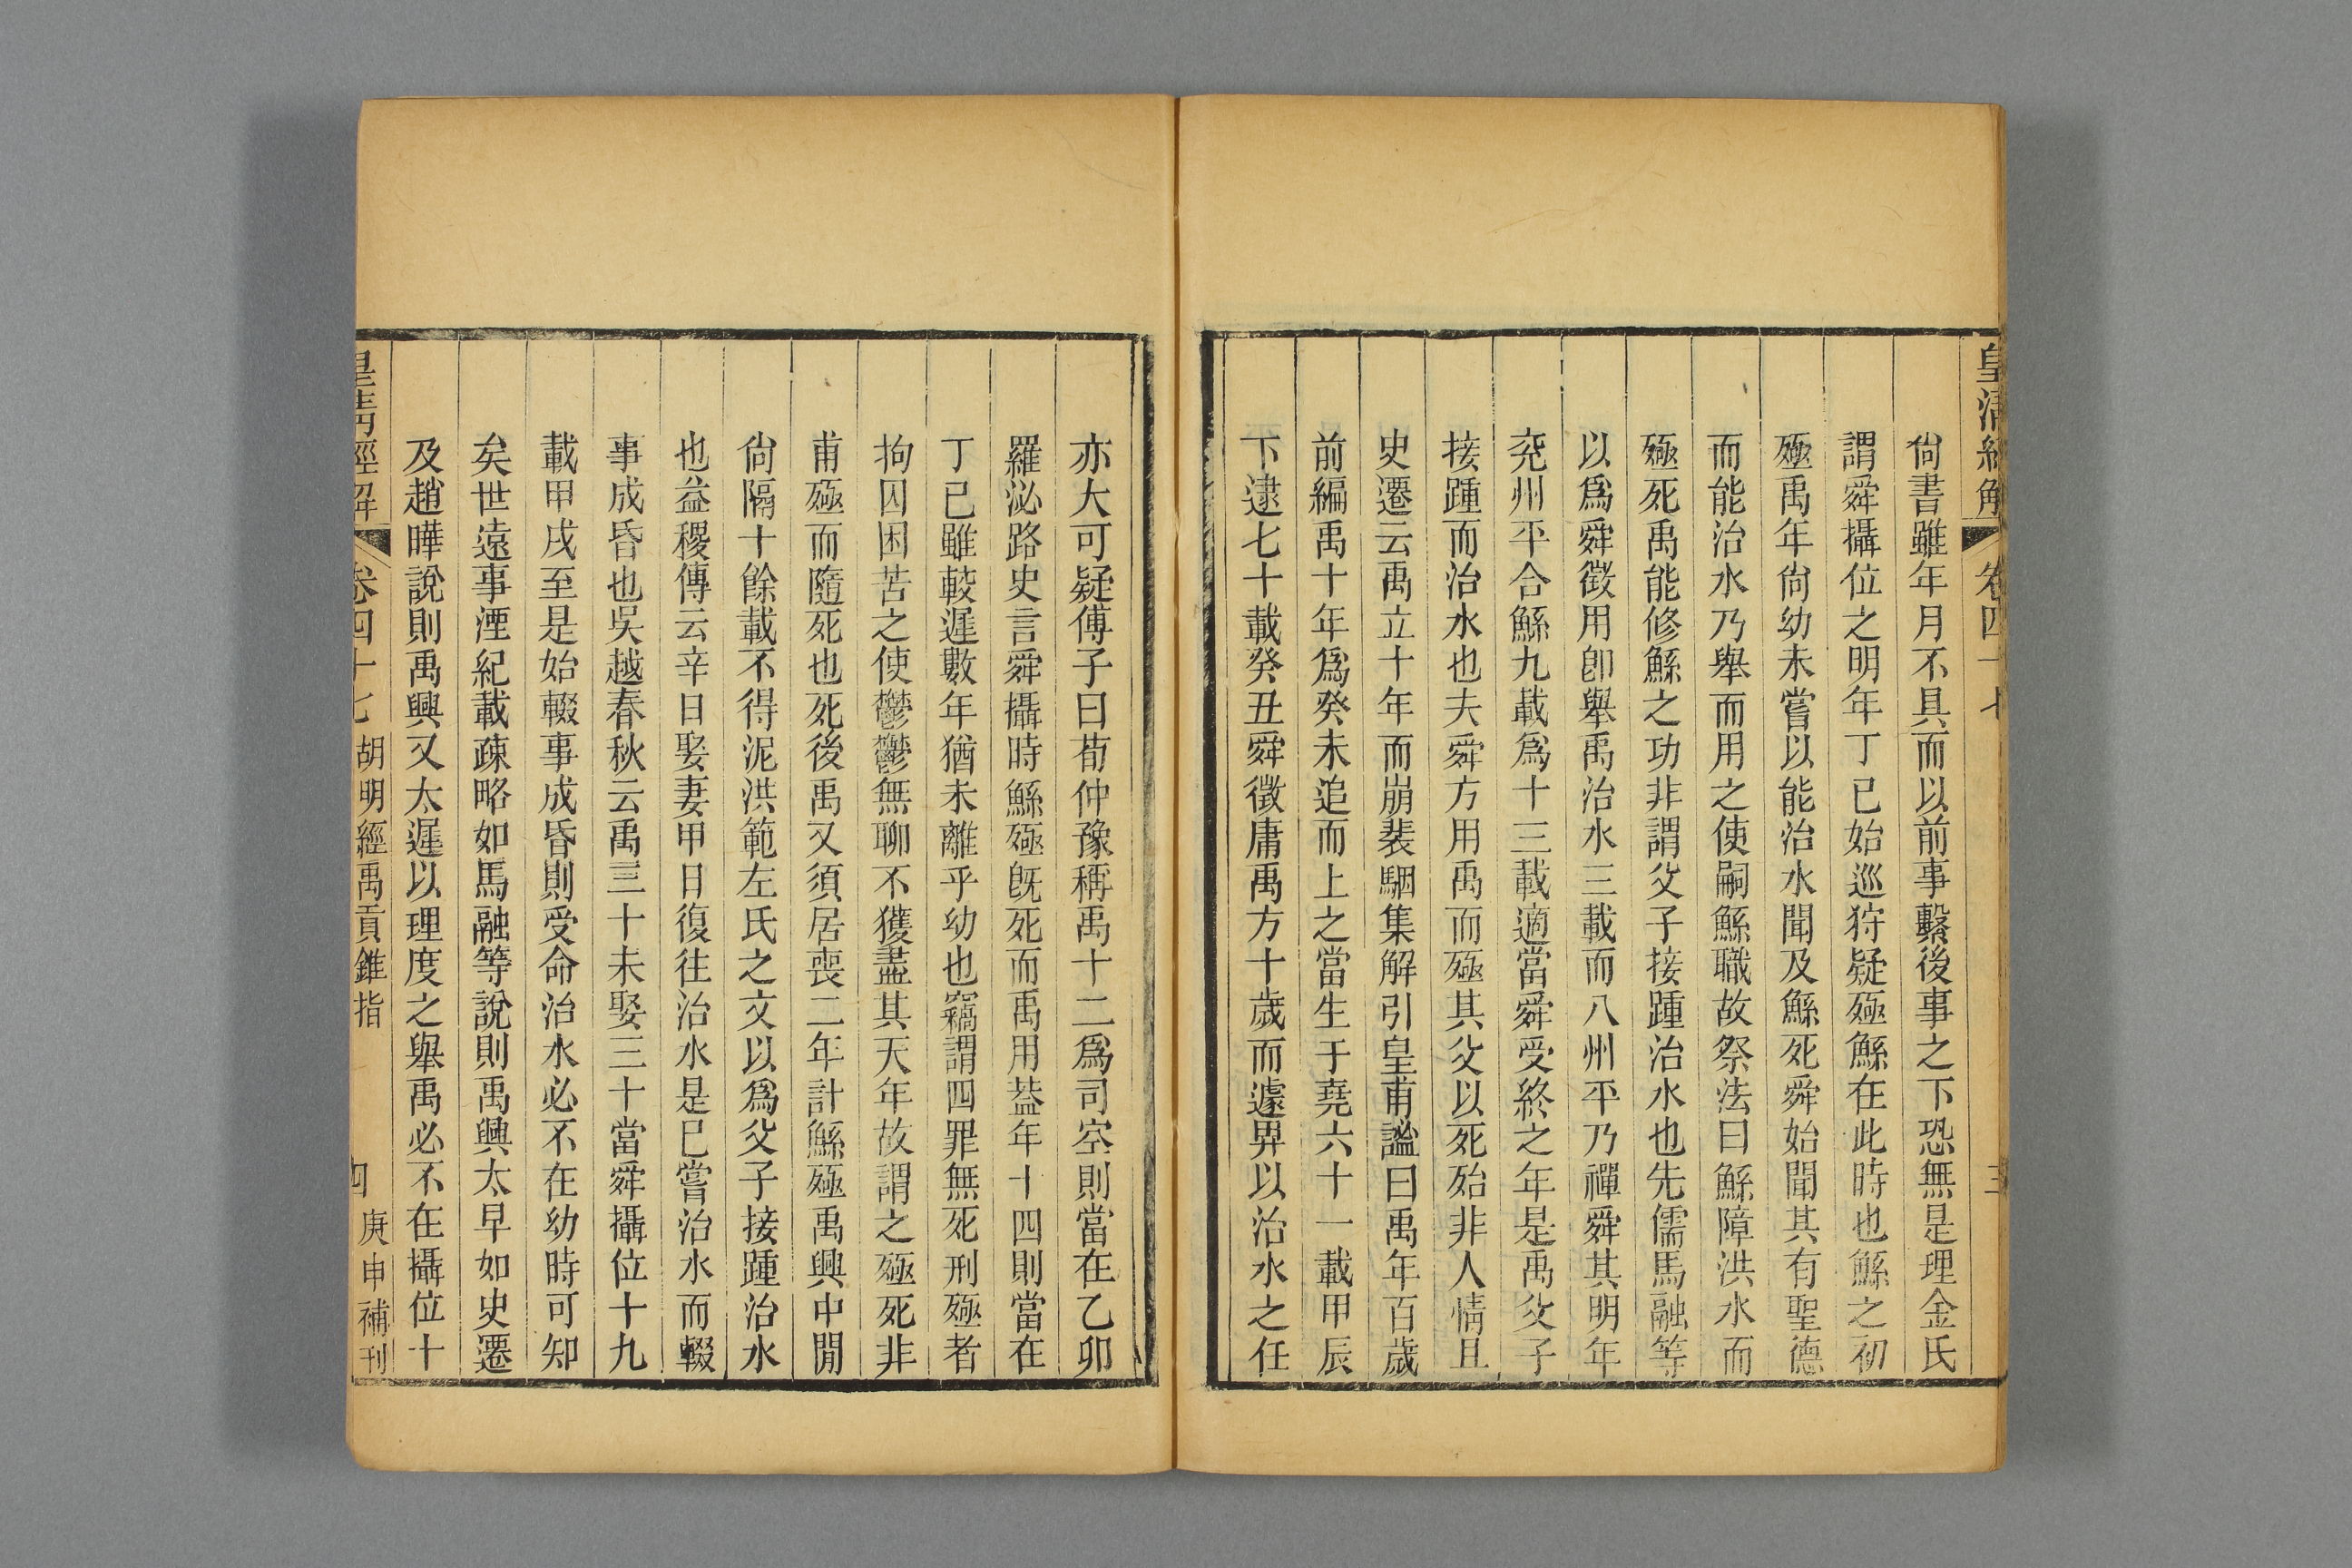 皇清經解 卷四十七 三
尙書雖年月不具而以前事繫後事之下恐無是理金氏
謂舜攝位之明年丁巳始巡狩疑殛鯀在此時也鯀之初
殛禹年尙幼未嘗以能治水聞及鯀死舜始聞其有聖德
而能治水乃舉而用之使嗣鯀職故祭法曰鯀障洪水而
殛死禹能修鯀之功非謂父子接踵治水也先儒馬融等
以爲舜徵用卽舉禹治水三載而八州平乃禪舜其明年
兖州平合鯀九載爲十三載適當舜受終之年是禹父子
接踵而治水也夫舜方用禹而殛其父以死殆非人情且
史遷云禹立十年而崩裴駰集解引皇甫謐曰禹年百歲
前編禹十年爲癸未追而上之當生于堯六十一載甲辰
下逮七十載癸丑舜徵庸禹方十歲而遽畀以治水之任
亦大可疑傅子曰荀仲豫稱禹十二爲司空則當在乙卯
羅泌路史言舜攝時鯀殛旣死而禹用葢年十四則當在
丁巳雖較遲數年猶未離乎幼也竊謂四罪無死刑殛者
拘囚困苦之使鬱鬱無聊不獲盡其天年故謂之殛死非
甫殛而隨死也死後禹又須居喪二年計鯀殛禹興中閒
尙隔十餘載不得泥洪範左氏之文以爲父子接踵治水
也益稷傳云辛日娶妻甲日復往治水是已嘗治水而輟
事成昏也吳越春秋云禹三十未娶三十當舜攝位十九
載甲戌至是始輟事成昏則受命治水必不在幼時可知
矣世遠事湮紀載疎略如馬融等說則禹興太早如史遷
及趙曄說則禹興又太遲以理度之舉禹必不在攝位十
皇淸經解 卷四十七 胡明經禹貢錐指 四 庚申補刊